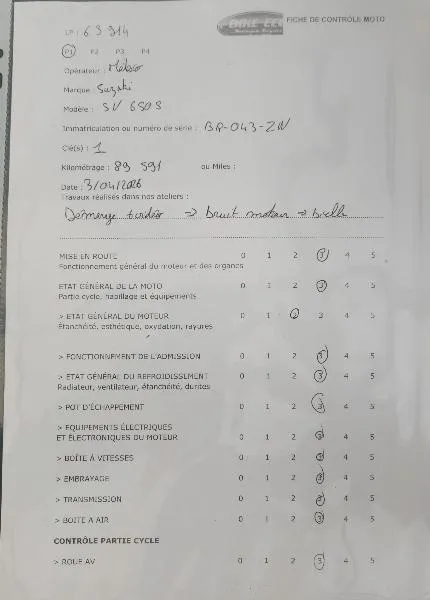 LP : 63 314
BIKE-ECO
FICHE DE CONTRÔLE MOTO
P1 P2 P3 P4
Opérateur :
Marque : Suzuki
Modèle : SV 650 S
Immatriculation ou numéro de série : BR-043-ZN
Clé(s) : 1
Kilométrage : 89 591 ou Miles :
Date : 3/04/2026
Travaux réalisés dans nos ateliers :
Démarage => bruit moteur -> bielle
MISE EN ROUTE 0 1 2 3 4 5
Fonctionnement général du moteur et des organes
ETAT GÉNÉRAL DE LA MOTO 0 1 2 3 4 5
Partie cycle, habillage et équipements
> ETAT GÉNÉRAL DU MOTEUR 0 1 2 3 4 5
Étanchéité, esthétique, oxydation, rayures
> FONCTIONNEMENT DE L'ADMISSION 0 1 2 3 4 5
> ETAT GÉNÉRAL DU REFROIDISSEMENT 0 1 2 3 4 5
Radiateur, ventilateur, étanchéité, durites
> POT D'ÉCHAPPEMENT 0 1 2 3 4 5
> EQUIPEMENTS ÉLECTRIQUES
ET ÉLECTRONIQUES DU MOTEUR 0 1 2 3 4 5
> BOÎTE À VITESSES 0 1 2 3 4 5
> EMBRAYAGE 0 1 2 3 4 5
> TRANSMISSION 0 1 2 3 4 5
> BOITE A AIR 0 1 2 3 4 5
CONTRÔLE PARTIE CYCLE
> ROUE AV 0 1 2 3 4 5